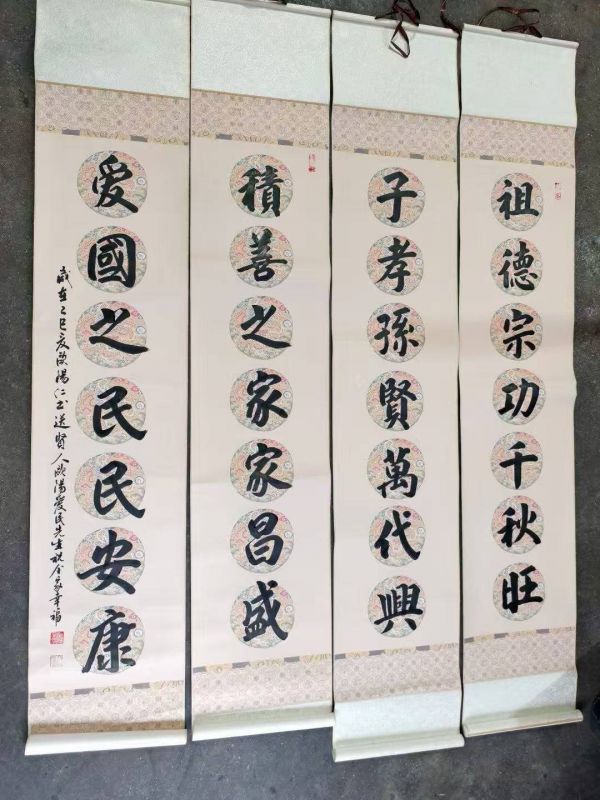 祖德宗功千秋旺
子孝孫賢萬代興
積善之家家昌盛
愛國之民民安康
歲在乙巳夏欧陽仁玉送賢人欧陽愛民先生祝全家幸福